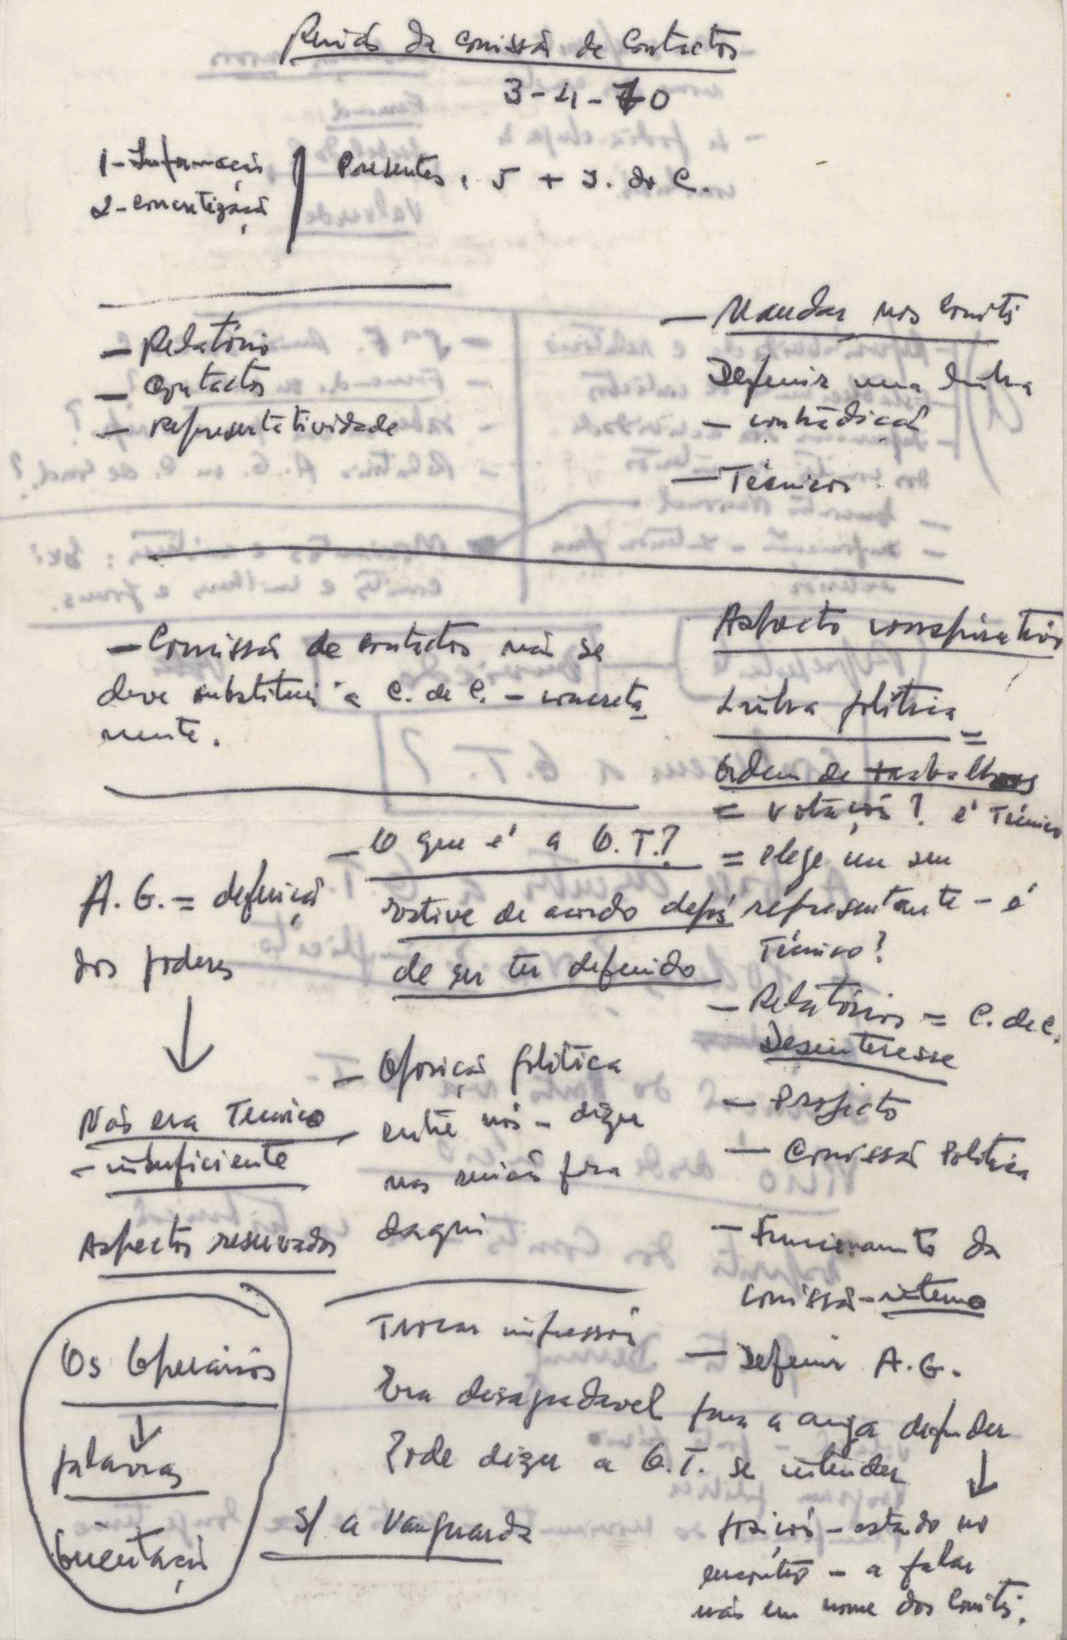 Reunião da comissão de Contactos
3-4-70
1- Informação
2- Concretização
Presentes, 5 + J. do C.
— Relatório
— Contactos
— representatividade
— Mandar nos Comités
Definir uma linha
— contradição
— Técnicos
— Comissão de contactos não se
deve substituir à C. de C. - concreta
mente.
Aspecto conspirativo
Linha política =
ordem de trabalhos
= votação? é Técnico
= elege um seu
representante - é
Técnico?
— Relatórios = C. de C.
Desinteresse
— Projecto
— Comissão Política
— Funcionamento da
comissão - interno
— Definir A.G.
A.G. = definição
dos poderes
Não era Técnico
- insuficiente
Aspectos reservados
Os Operários
palavras
Orientação
— O que é a O.T.?
Estive de acordo depois
de ser ter definido
— Oposição política
entre nós - dizer
nas reunião fora
daqui
Trocar impressões
Era desagradavel para a amiga defender
Pode dizer a O.T. se entender
s/ a Vanguarda
posição - estado no
encontro - a falar
não em nome dos Comités.